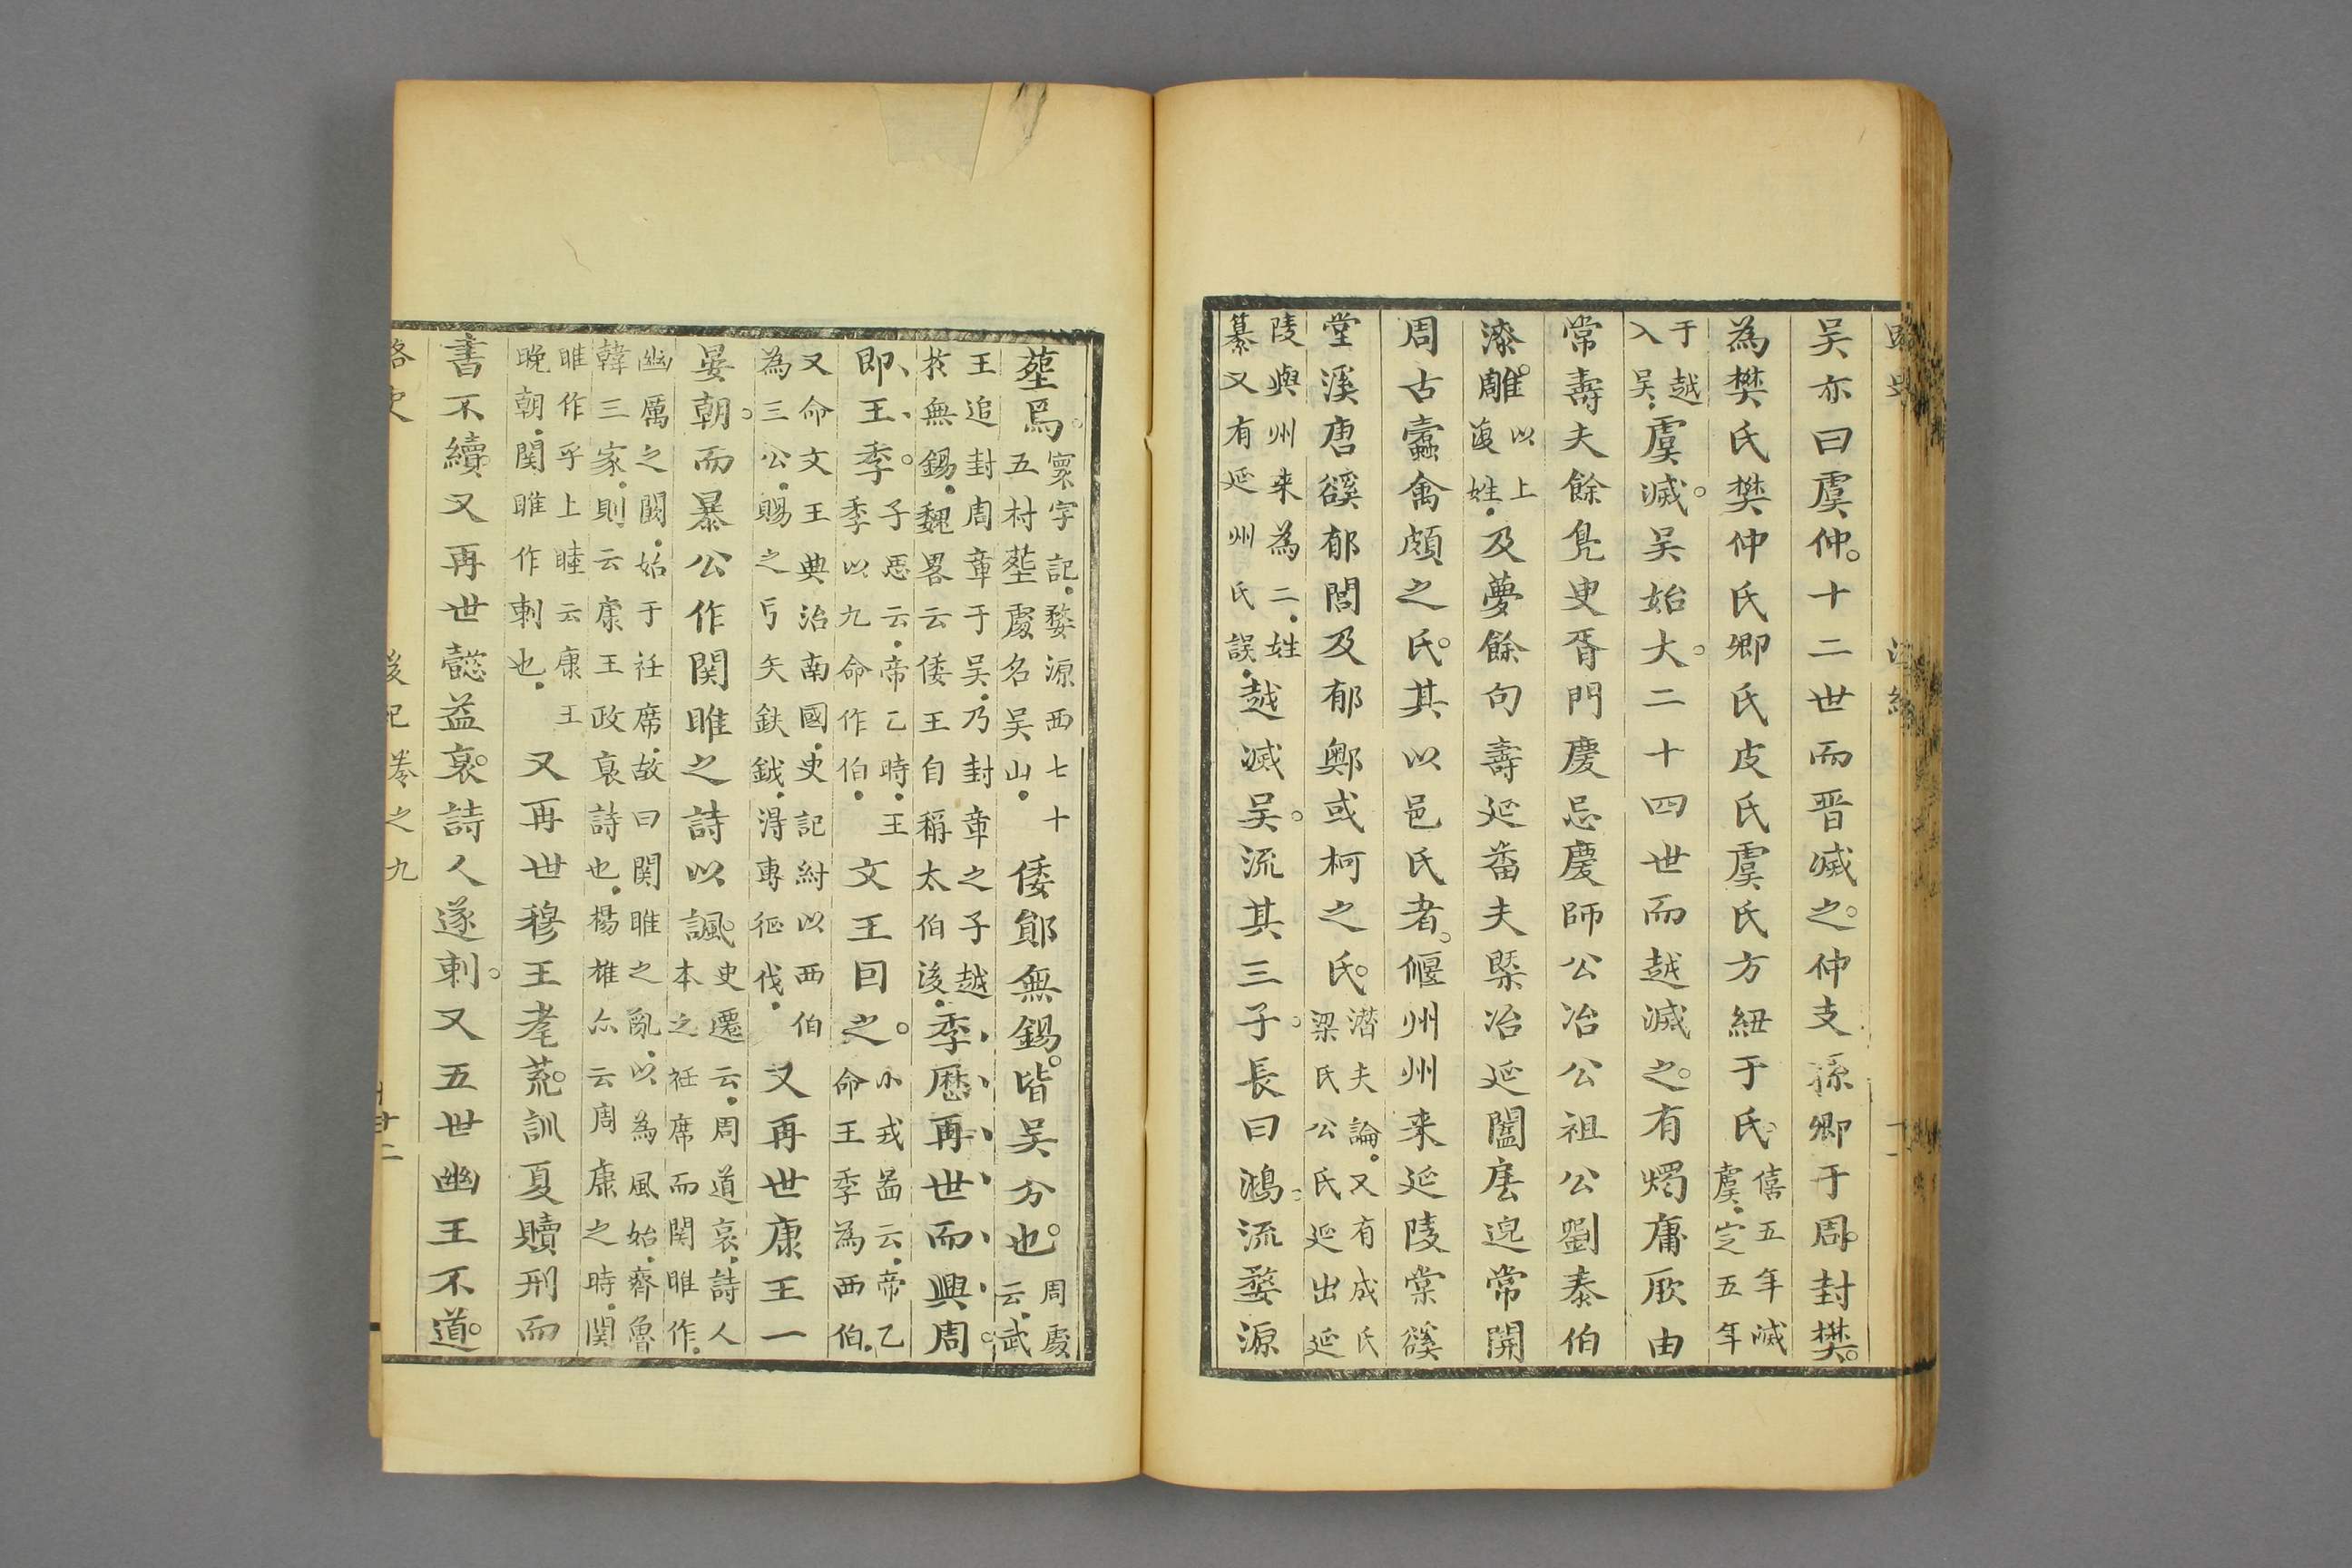 吴亦曰虞仲十二世而晋滅之仲支孫卿于周封樊
為樊氏樊仲氏卿氏皮氏虞氏方紐于氏僖五年滅虞定五年
于越入吴虞滅吴始大二十四世而越滅之有燭庸厥由
常壽夫餘鳧史胥門慶忌慶師公冶公祖公劉泰伯
漆雕以上復姓及夢餘句壽延番夫槩冶延闔厔逆常開
周古蠹禽頗之氏其以邑氏者偃州州来延陵棠谿
堂溪唐谿郁閭及郁鄭或柯之氏潜夫論又有成氏梁氏公氏延出延
陵與州来為二姓纂又有延州氏誤越滅吴流其三子長曰鴻流婺源
塟焉寰宇記婺源西七十五村塟處名吴山倭郧無錫皆吴分也周處云武
王追封周章于吴乃封章之子越於無錫魏畧云倭王自稱太伯後季厯再世而興周
即王季子惡云帝乙時王季以九命作伯文王囙之小戎啚云帝乙命王季為西伯
又命文王典治南國史記紂以西伯為三公賜之弓矢鈇鉞得專征伐又再世康王一
晏朝而暴公作関雎之詩以諷史遷云周道衰詩人本之衽席而関雎作
幽厲之闕始于衽席故曰関雎之亂以為風始齊魯韓三家則云康王政衰詩也楊雄亦云周康之時関
雎作乎上睦云康王晚朝関雎作刺也又再世穆王耄荒訓夏贖刑而
書不續又再世懿益衰詩人遂刺又五世幽王不道
後紀卷之九
廿二